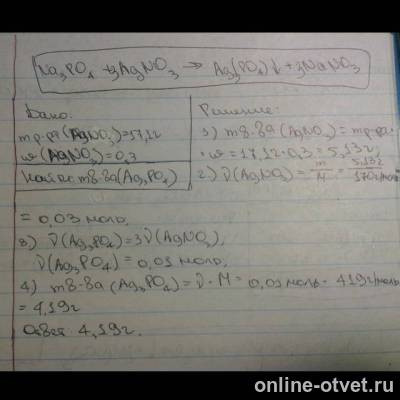 Na₃PO₄ + 3AgNO₃ → Ag₃(PO₄)↓ + 3NaNO₃
Дано:
m р-ра (AgNO₃) = 17,1г
ω(AgNO₃) = 0,3
Найти: m в-ва (Ag₃PO₄)
Решение:
1) m в-ва (AgNO₃) = m р-ра ·
· ω = 17,1г · 0,3 = 5,13г,
2) ν(AgNO₃) = m/M = 5,13г/170г/моль
= 0,03 моль,
3) ν(Ag₃PO₄) = 3ν(AgNO₃),
ν(Ag₃PO₄) = 0,01 моль,
4) m в-ва (Ag₃PO₄) = ν · M = 0,01 моль · 419г/моль
= 4,19г
Ответ: 4,19г.
online-otvet.ru